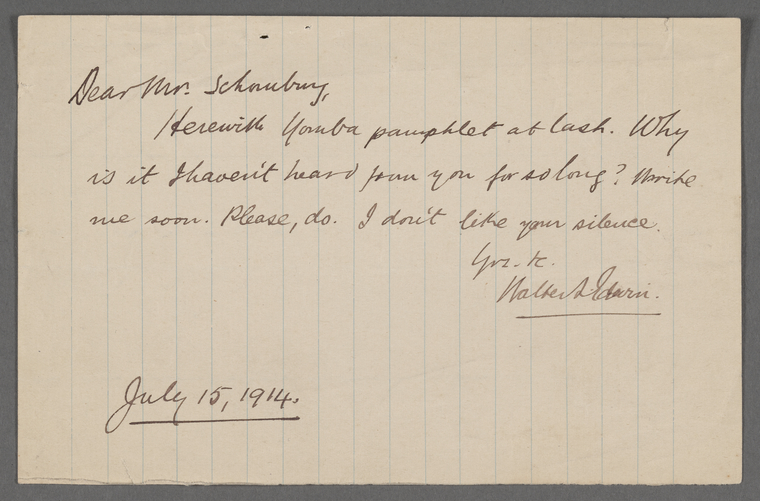 Dear Mr. Schomburg,
Herewith Yoruba pamphlet at last. Why
is it I haven't heard from you for so long? Write
me soon. Please, do. I don't like your silence.
Yrs. &c.
Walter Edwin.
July 15, 1914.